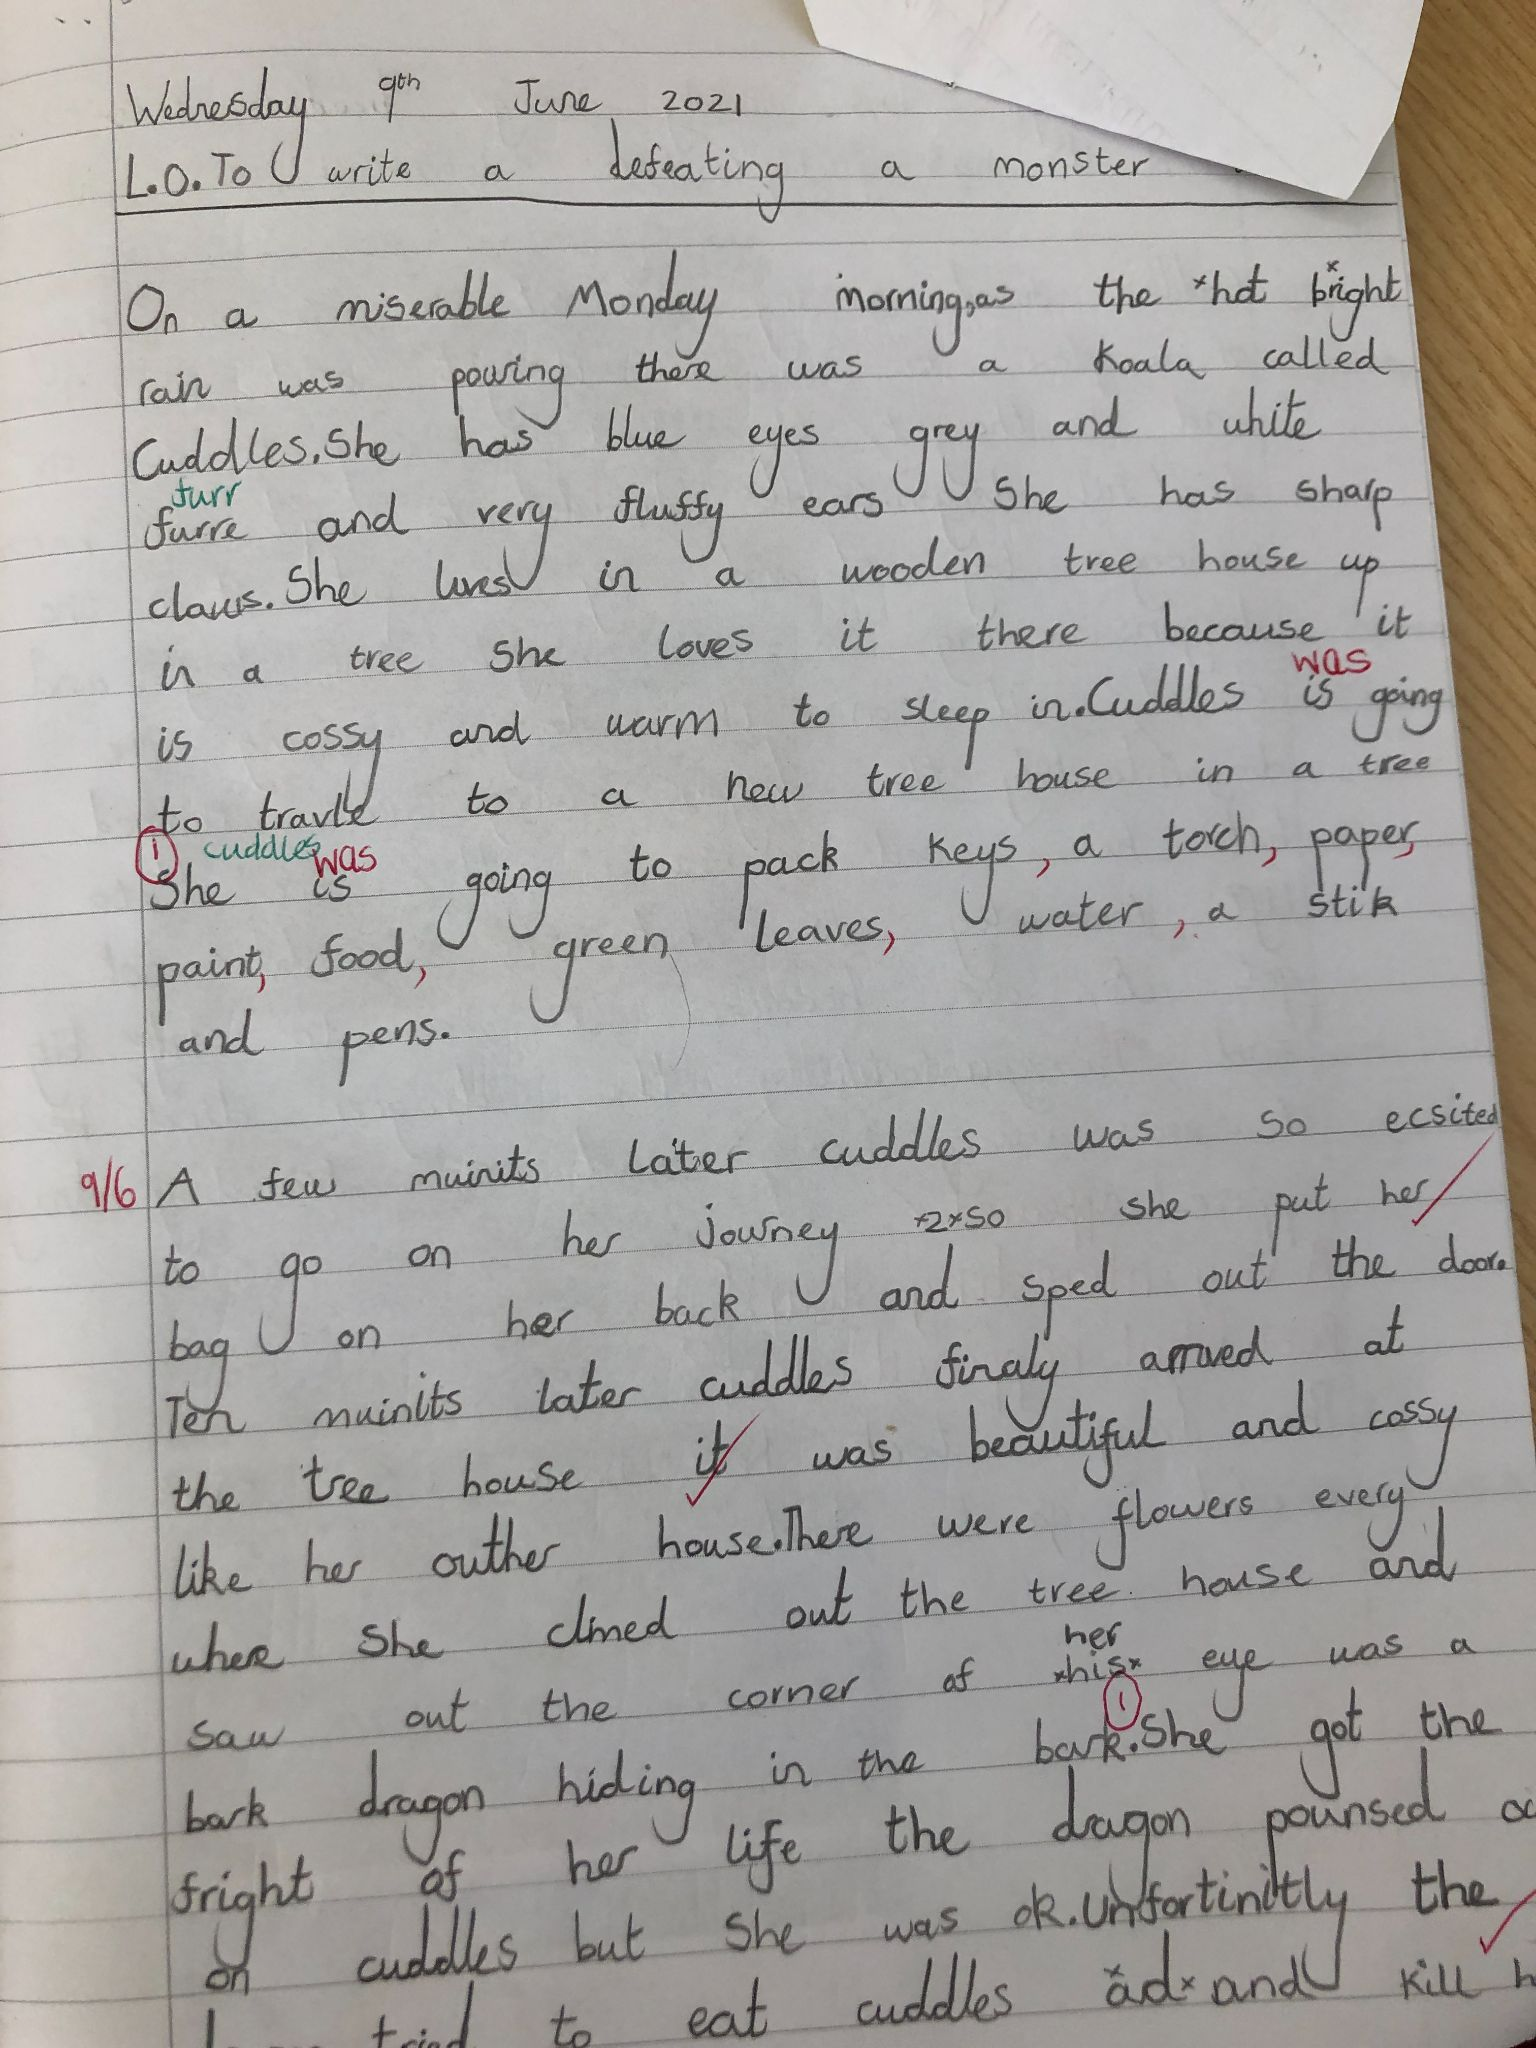 Wednesday 9th June 2021
L.O. To write a defeating a monster
On a miserable Monday morning, as the *hot bright
rain was pouring there was a Koala called
Cuddles. She has blue eyes grey and white
furr
furre and very fluffy ears She has sharp
claws. She lives in a wooden tree house up
in a tree She loves it there because it
was
is cossy and warm to sleep in. Cuddles is going
to travle to a new tree house in a tree
1 cuddles was
She is going to pack keys, a torch, paper,
paint, food, green leaves, water, a stik
and pens.
9/6 A few muinits later cuddles was so ecsited
to go on her journey *2*so she put her
bag on her back and sped out the door.
Ten muinits later cuddles finaly arrived at
the tree house it was beautiful and cossy
like her outher house. There were flowers every
where She climed out the tree house and
her
saw out the corner of *his* eye was a
1
bark dragon hiding in the bark. She got the
fright of her life the dragon pounsed
on cuddles but She was ok. Unfortinitly the
tried to eat cuddles *ad* and kill